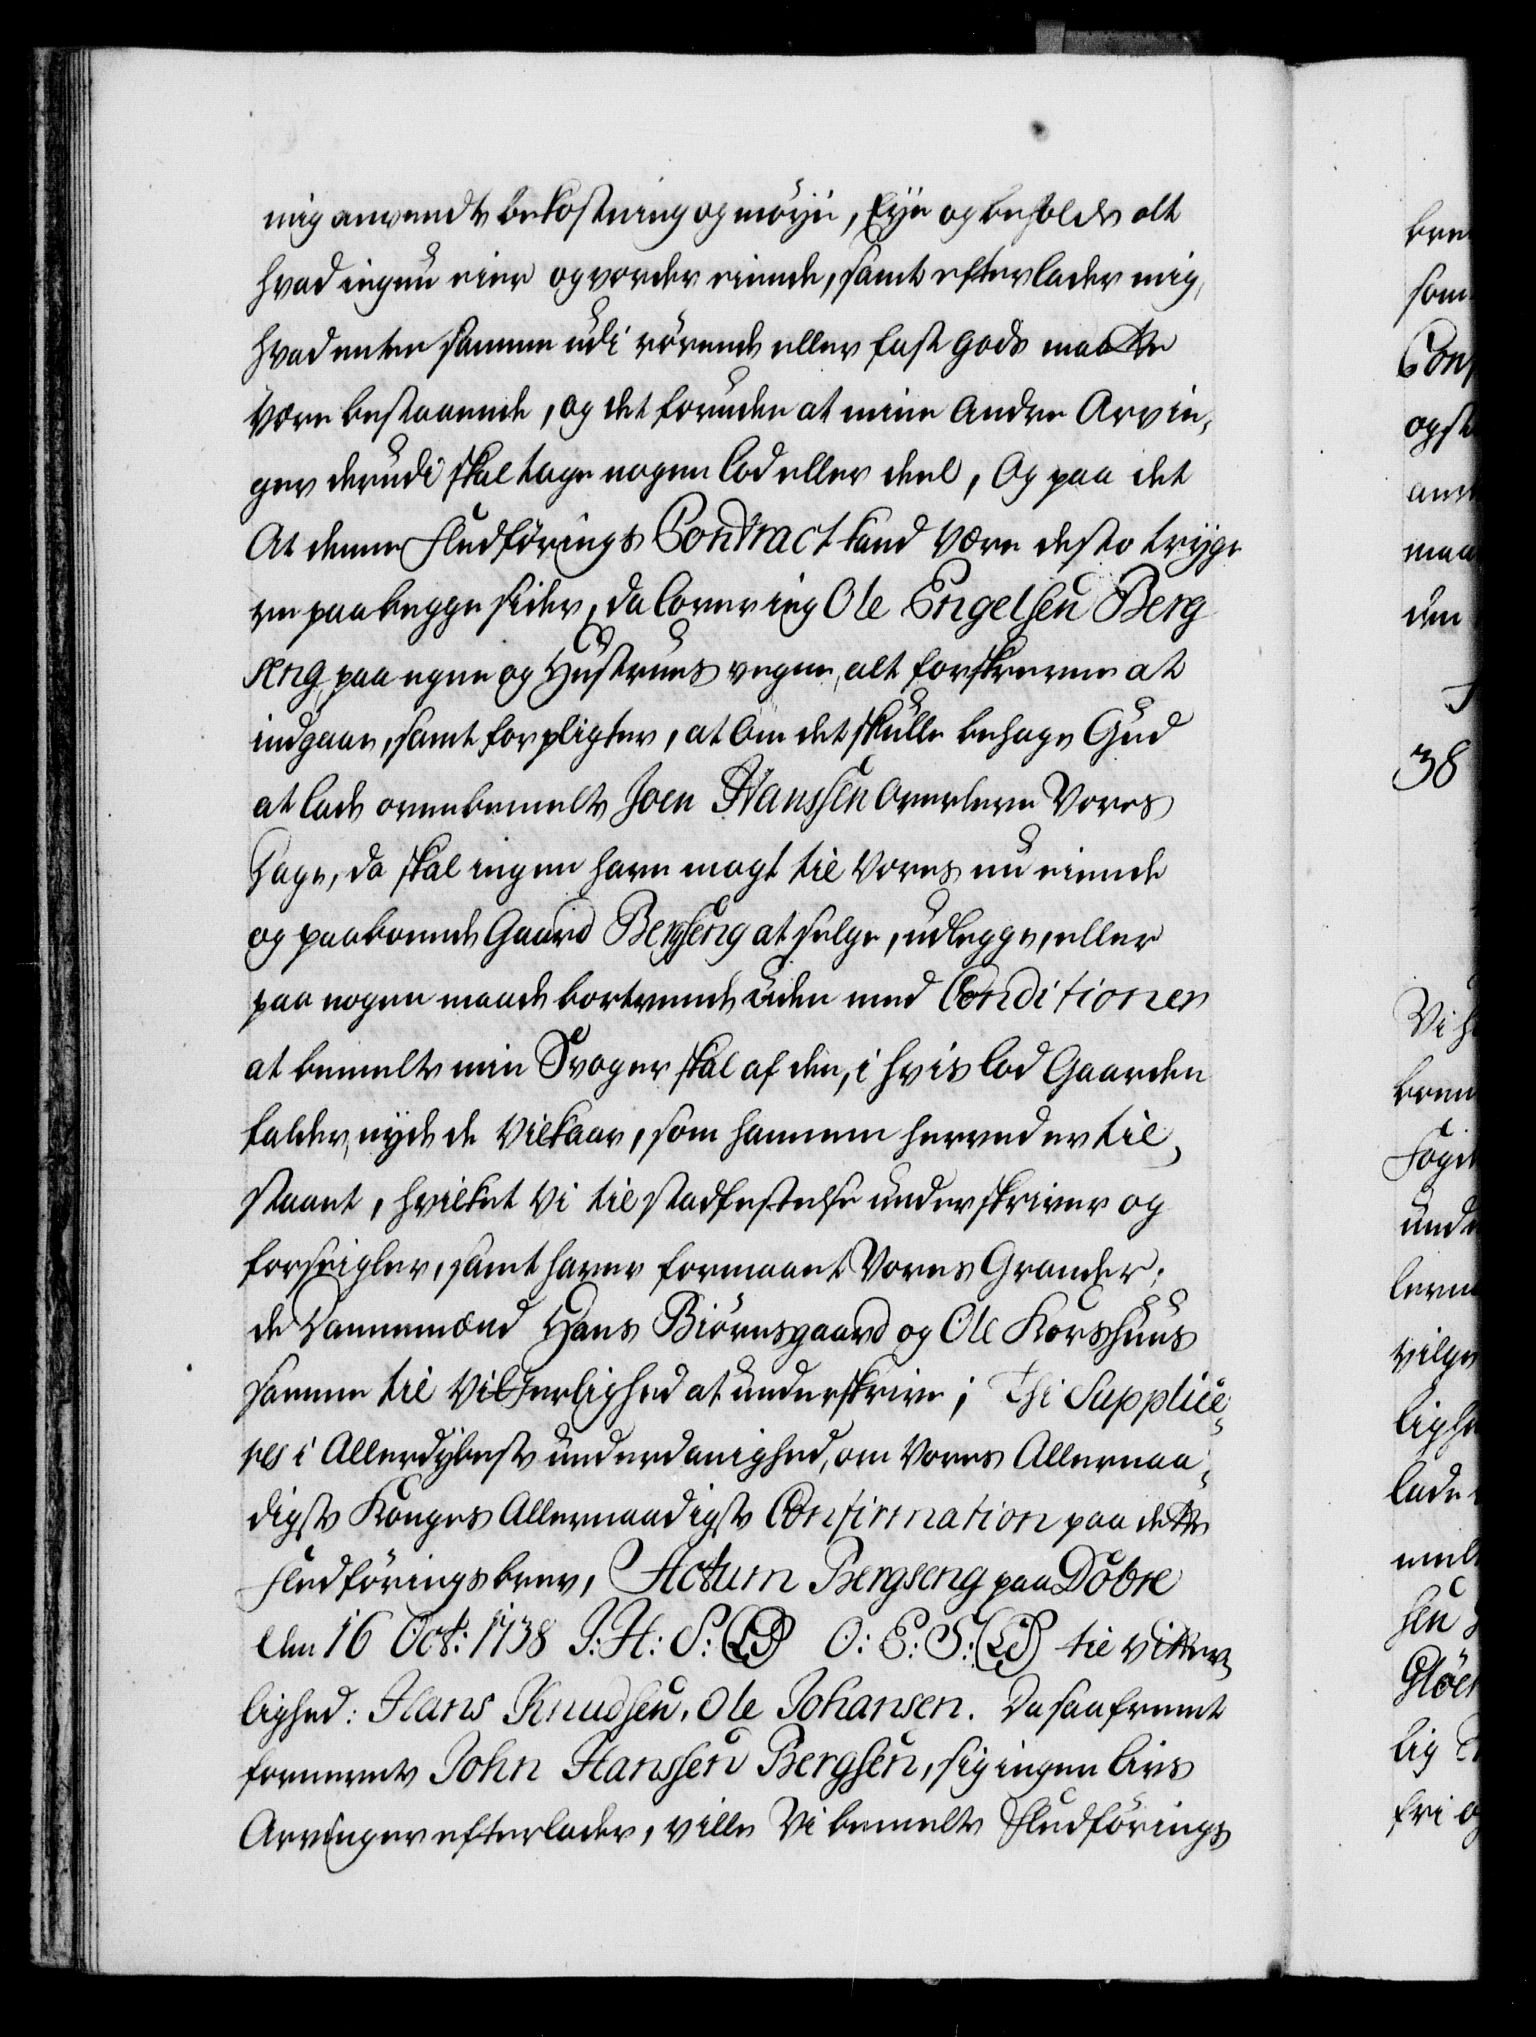 mig anvendte bekostning og møye, Eye og beholde alt
hvad ingen eier og vorder eiende, samt efterlader mig,
hvad enten samme udi rörende eller fast gods maatte
være bestaaende, og det foruden at mine Andre Arvin,
ger derudi skal tage nogen lod eller deel, Og paa det
At denne Fledförings Contract kand være desto tryge
re paa begge sider, da lover ieg Ole Engelsen Berg
seng, paa egne og Hustrues vegne, alt forskrevne at
indgaae, samt forpligter, at om det skulle behage Gud
at lade ovenbemelte Joen Hanssen overleve Vores
Dage, da skal ingen have magt til Vores nu eiende
og paaboende Gaard Bergseng at selge, udlegge, eller
paa nogen maade bortvende uden med Conditioner
at bemelte min Svoger skal af den, i hvis lod Gaarden
falder, nyde de Vilkaar, som hannem herved er til,
staaet, hvilket Vi til stadfestelse underskriver og
forseigler, samt haver formaaet Vores Grander,
de Dannemænd Hans Biörnsgaard og Ole Korshuus
samme til Vitterlighed at underskrive; Thi Supplice,
res i Allerdybeste underdanighed, om Vores Allernaa,
digste Konges Allernaadigste Confirmation paa dette
Fledförings brev, Actum Bergseng paa Dobre
den 16 Oct: 1738 J: H: S: (LS) O: E: S: (LS) til Vitter,
lighed: Hans Knudsen, Ole Johansen. Da saafremt
fornevnte John Hanssen Bergsen, sig ingen livs
Arvinger efterlader, ville Vi bemelte Fledförings
38